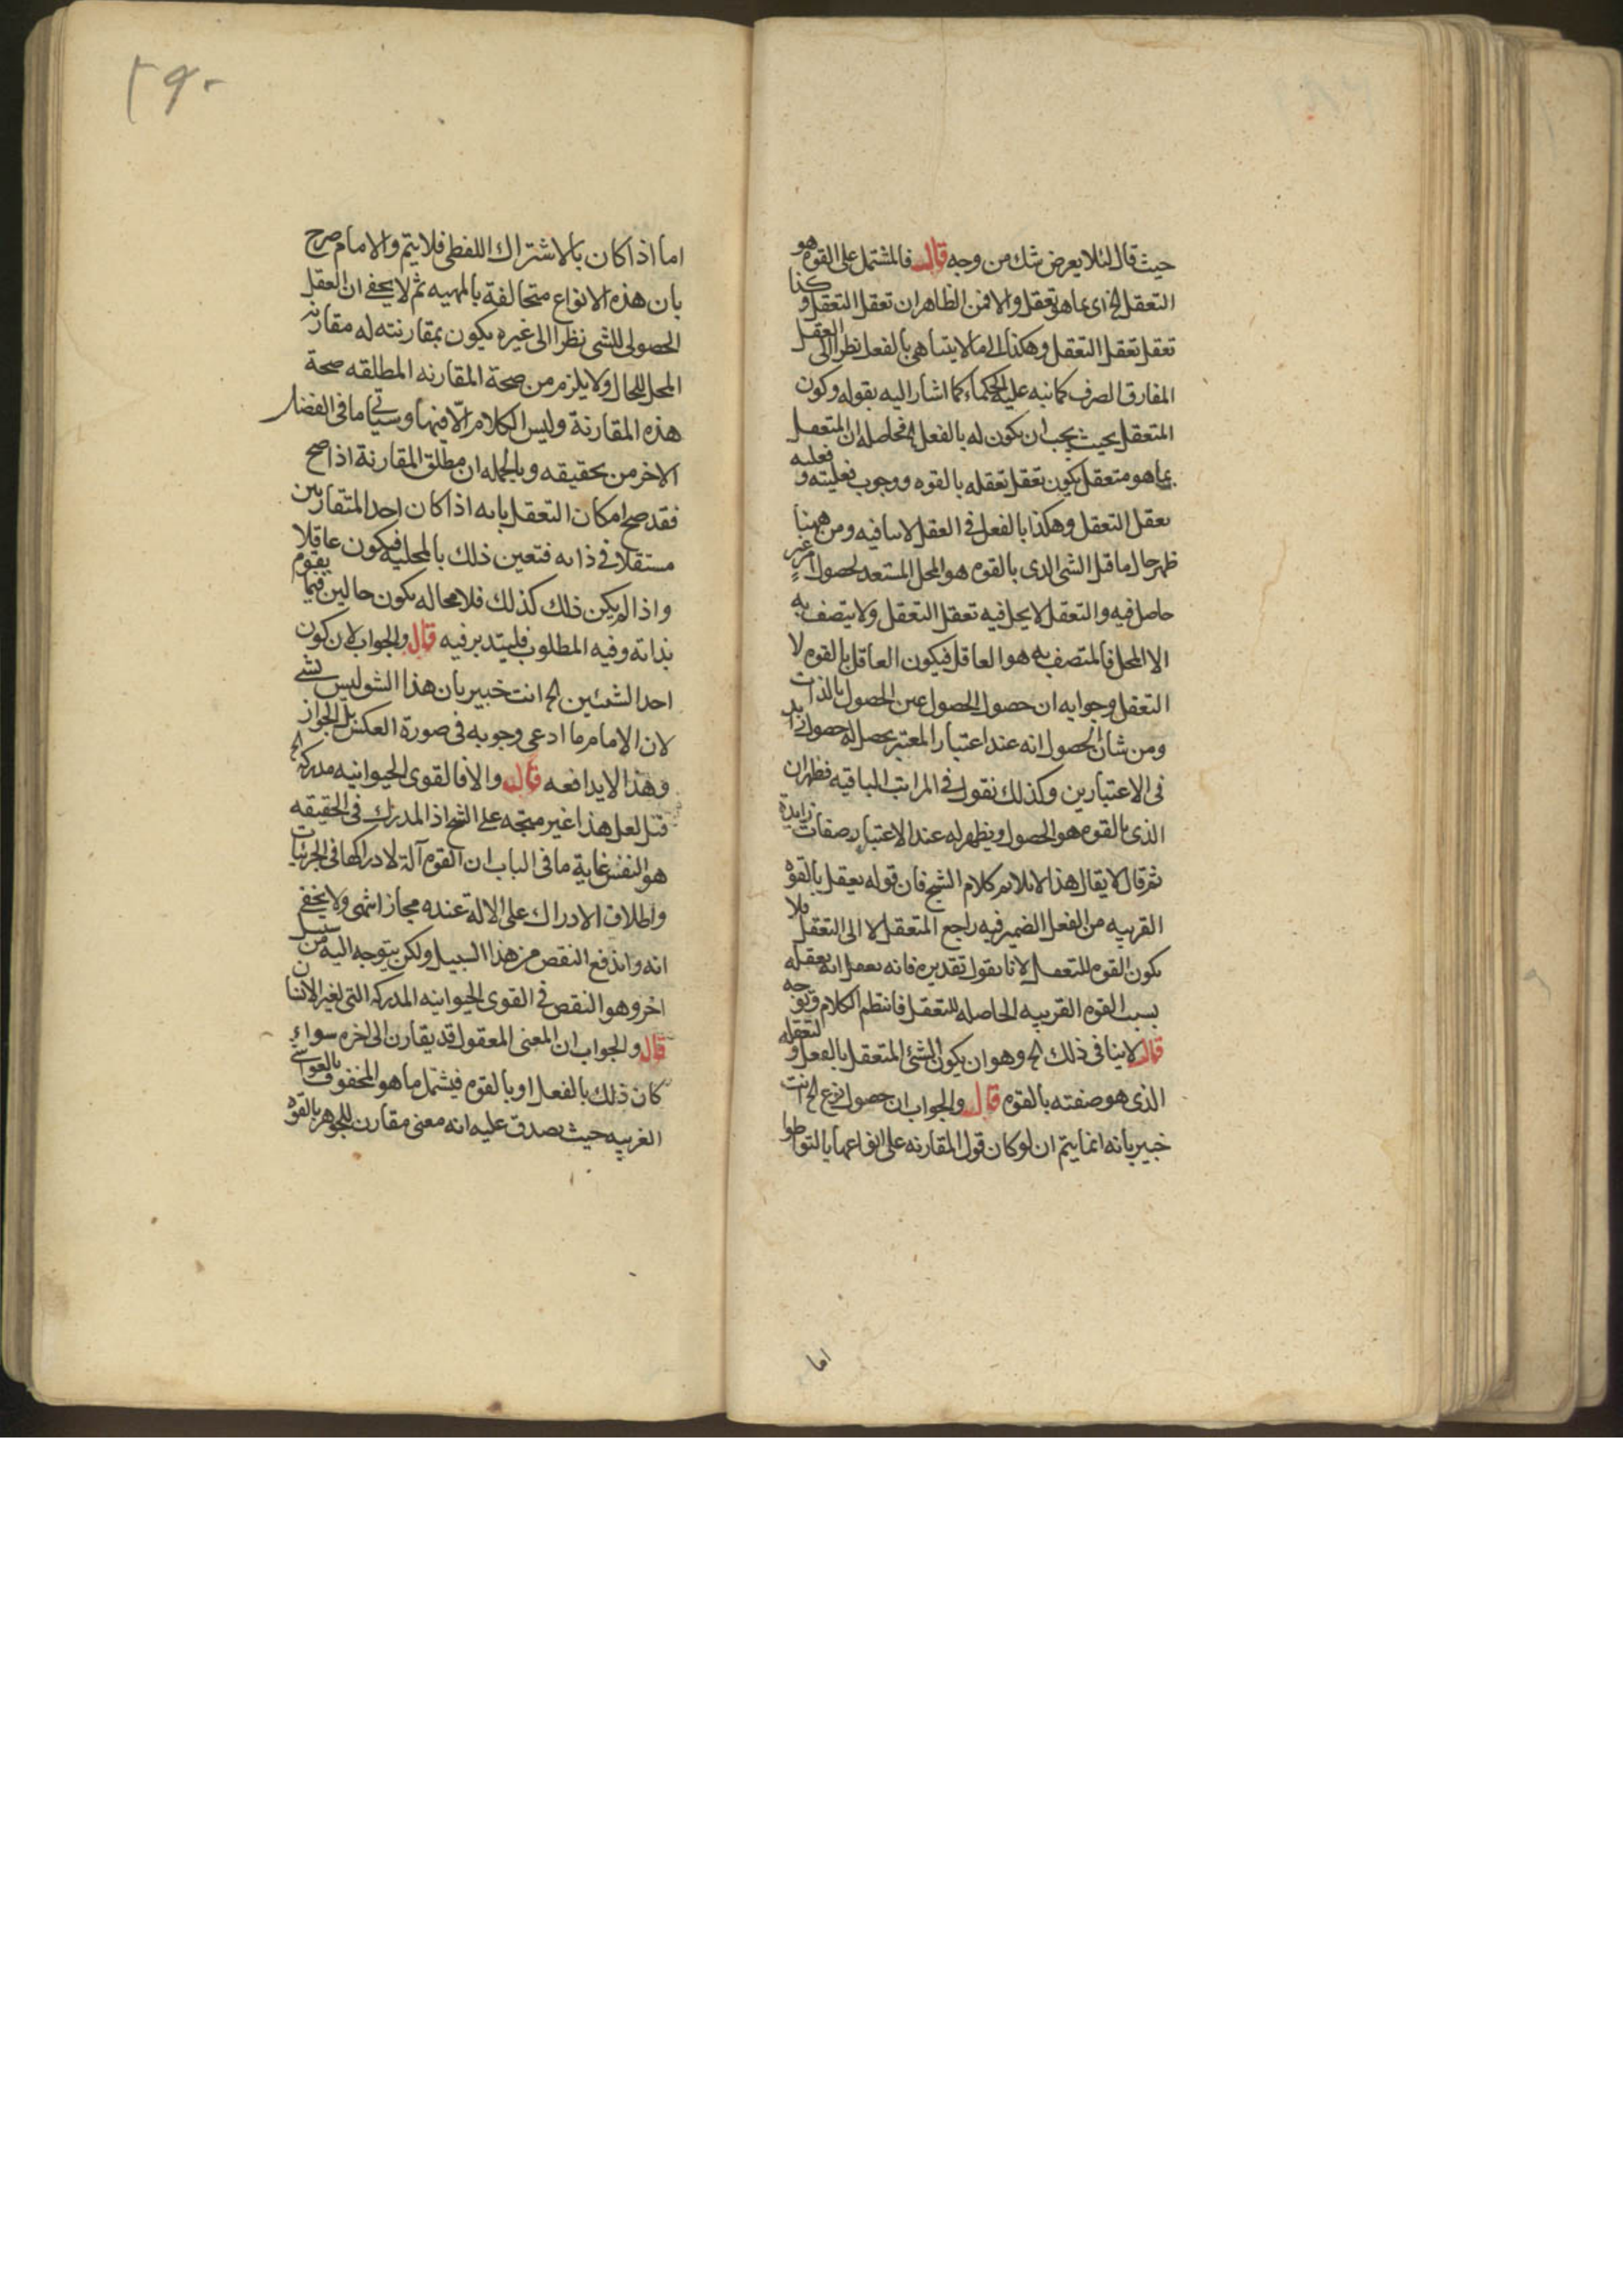 حيث قال لئلا يعرض شك من وجه قال فالمشتمل على القوه هو
التعقل الخ اى بما هو تعقل والا فمن الظاهر ان تعقل التعقل و كذا
تعقل تعقل التعقل وهكذا الى ما لا يتناهى بالفعل نظرا الى العقل
المفارق الصرف كما نبه عليه الحكماء كما اشار اليه بقوله وكون
المتعقل بحيث يجب ان يكون له بالفعل الخ فحاصله ان المتعقل
بما هو متعقل يكون تعقل تعقله بالقوه ووجوب فعليته و فعليه
تعقل التعقل وهكذا بالفعل فى العقل لا ينافيه ومن ههنا
ظهر حال ما قيل الشى الذى بالقوه هو المحل المستعد لحصول امر غير
حاصل فيه والتعقل لا يحل فيه تعقل التعقل ولا يتصف به
الا المحل فالمتصف به هو العاقل فيكون العاقل بالقوه لا
التعقل وجوابه ان حصول الحصول عين الحصول بالذات
ومن شان الحصول انه عند اعتبار المعتبر يحصل له حصول زايد
فى الاعتبارين وكذلك نقول فى المراتب الباقيه فظهر ان
الذى بالقوه هو الحصول ويظهر له عند الاعتبار صفات زايدة
ثم قال لا يقال هذا لا يلايم كلام الشيخ فان قوله يعقل بالقوة
القريبه من الفعل الضمير فيه راجع المتعقل لا الى التعقل فلا
يكون القوه للتعقل لانا نقول تقديره فانه يعقل انه يعقله
بسبب القوه القريبه الحاصله للتعقل فانتظم الكلام وتوجه
قال لا ينافى ذلك الخ وهو ان يكون الشئ المتعقل بالفعل و لتعقله
الذى هو صفته بالقوه قال والجواب ان حصول نوع الخ انت
خبير بانه انما يتم ان لو كان قول المقارنه على انواعها بالتواطوا
اما
٢٩٠
اما اذا كان بالاشتراك اللفظى فلا يتم والامام صرح
بان هذه الانواع متخالفة بالمهيه ثم لا يخفى ان العقل
الحصولى للشى نظرا الى غيره يكون بمقارنته له مقارنه
المحل للحال ولا يلزم من صحة المقارنه المطلقه صحة
هذه المقارنة وليس الكلام الّا فيها وسياتى ما فى الفصل
الاخر من تحقيقه وبالجمله ان مطلق المقارنة اذا صح
فقد صح امكان التعقل بانه اذا كان احد المتقارنين
مستقلا فى ذاته فتعين ذلك بالمحليه فيكون عاقلا
واذا لم يكن ذلك كذلك فلا محاله يكون حالين فيما يقوم
بذاته وفيه المطلوب فليتدبر فيه قال والجواب لان كون
احد الشيئين الخ انت خبير بان هذا الشو ليس بشى
لان الامام ما ادعى وجوبه فى صورة العكس بل الجواز
وهذا لا يدافعه قال والا فالقوى الحيوانيه مدركه الخ
قيل لعل هذا غير متجه على الشيخ اذ المدرك فى الحقيقه
هو النفس غاية ما فى الباب ان القوه آلة لادراكها فى الجزئيات
واطلاق الادراك على الالة عنده مجاز انتهى ولا يخفى
انه واندفع النقص من هذا السبيل ولكن يتوجه اليه من سبيل
اخر وهو النقص فى القوى الحيوانيه المدركه التى لغير الانسان
قال والجواب ان المعنى المعقول قد يقارن الى اخره سواء
كان ذلك بالفعل او بالقوه فيشمل ما هو المحفوف بالغواشى
الغريبه حيث يصدق عليه انه معنى مقارن للجوهر بالقوه